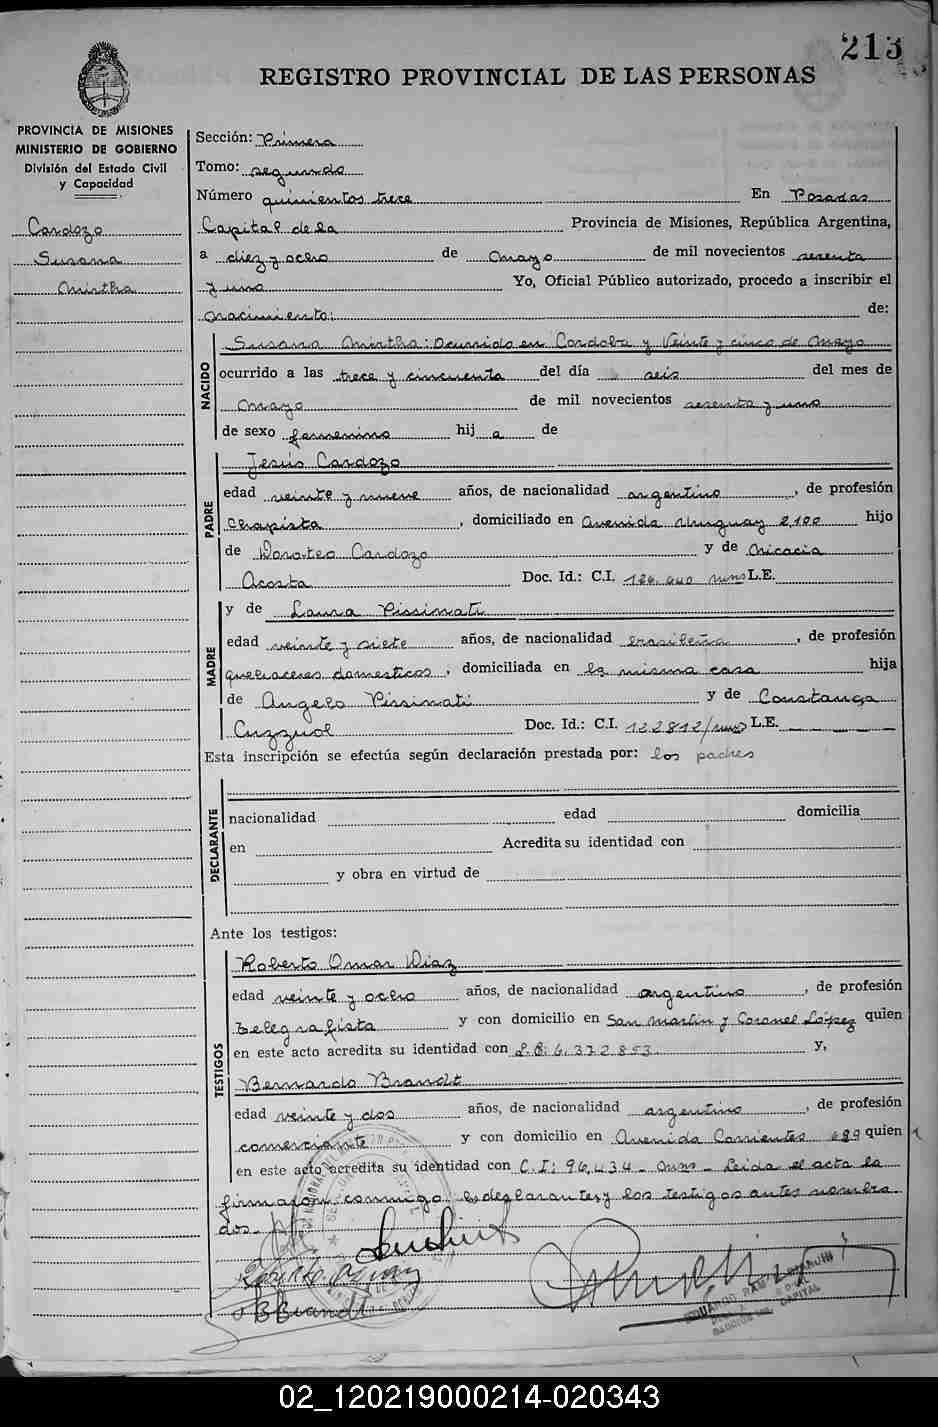 213
REGISTRO PROVINCIAL DE LAS PERSONAS
PROVINCIA DE MISIONES
MINISTERIO DE GOBIERNO
División del Estado Civil
y Capacidad
Cardozo
Susana
Mirtha
Sección: Primera
Tomo: segundo
Número quinientos trece En Posadas
Capital de la Provincia de Misiones, República Argentina,
a diez y ocho de mayo de mil novecientos sesenta
y uno Yo, Oficial Público autorizado, procedo a inscribir el
nacimiento: de:
NACIDO
Susana Mirtha: Ocurrido en Cordoba y Veinte y cinco de Mayo
ocurrido a las trece y cincuenta del día seis del mes de
Mayo de mil novecientos sesenta y uno
de sexo femenino hij a de
PADRE
Jesús Cardozo
edad veinte y nueve años, de nacionalidad argentino, de profesión
Chapista, domiciliado en Avenida Uruguay 2100 hijo
de Doroteo Cardozo y de Nicacia
Acosta Doc. Id.: C.I. L.E.
MADRE
y de Laura Pissinati
edad veinte y siete años, de nacionalidad brasileña, de profesión
quehaceres domesticos, domiciliada en la misma casa hija
de Angelo Pissinati y de Constança
Cuzzuol Doc. Id.: C.I. 122812/mns L.E.
Esta inscripción se efectúa según declaración prestada por: los padres
DECLARANTE
nacionalidad edad domicilia
en Acredita su identidad con
y obra en virtud de
Ante los testigos:
TESTIGOS
Roberto Omar Diaz
edad veinte y ocho años, de nacionalidad argentino, de profesión
telegrafista y con domicilio en San Martin y Coronel López quien
en este acto acredita su identidad con 6.372.853. y,
Bernardo Brandt
edad veinte y dos años, de nacionalidad argentino, de profesión
comerciante y con domicilio en Avenida Corrientes 689 quien
en este acto acredita su identidad con C.I: 96.434 - mns - Leida el acta la
firmaron conmigo los declarantes y los testigos antes nombra
dos.
BBrandt
CAPITAL
02_120219000214-020343